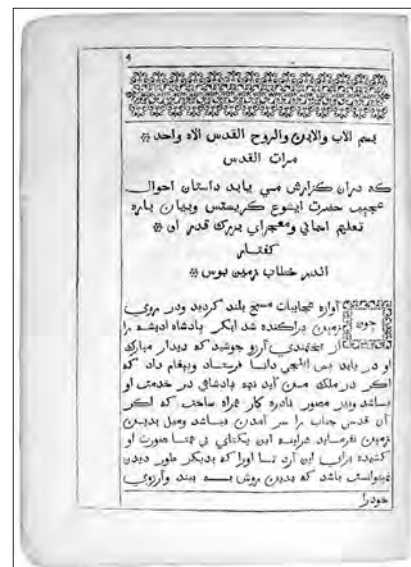 بسم الاب والابن والروح القدس الاه واحد
مرات القدس
که دران کزارش مي يابد داستان احوال
عجيب حضرت ايشوع کريستس وبيان پاره
تعليم ومعجزاي بزرک قدر ان
کفتار
اندر خطاب زمين بوس
چون آوازه عجايبات مسيح بلند کرديد ودر روي
زمين پراکنده شد ابکر پادشاه اديشه را
از آرزو جوشيد که ديدار مبارک
او در يابد پس ايلچي دانا فرستاد وپيغام داد که
اکر در ملک من آيد پادشاهي در خدمتي او
باشد مصور نادره کار همراه ساخت که اکر
آن قدس جناب را سر آمدن نباشد وميل بدين
زمين نفرمايد اين يکتاي بي همتا صورت او
کشيده براي اين آرد تا اورا که بديکر طور ديدن
نميتوانست باشد که بدين روش به بيند وآرزوي
خودرا